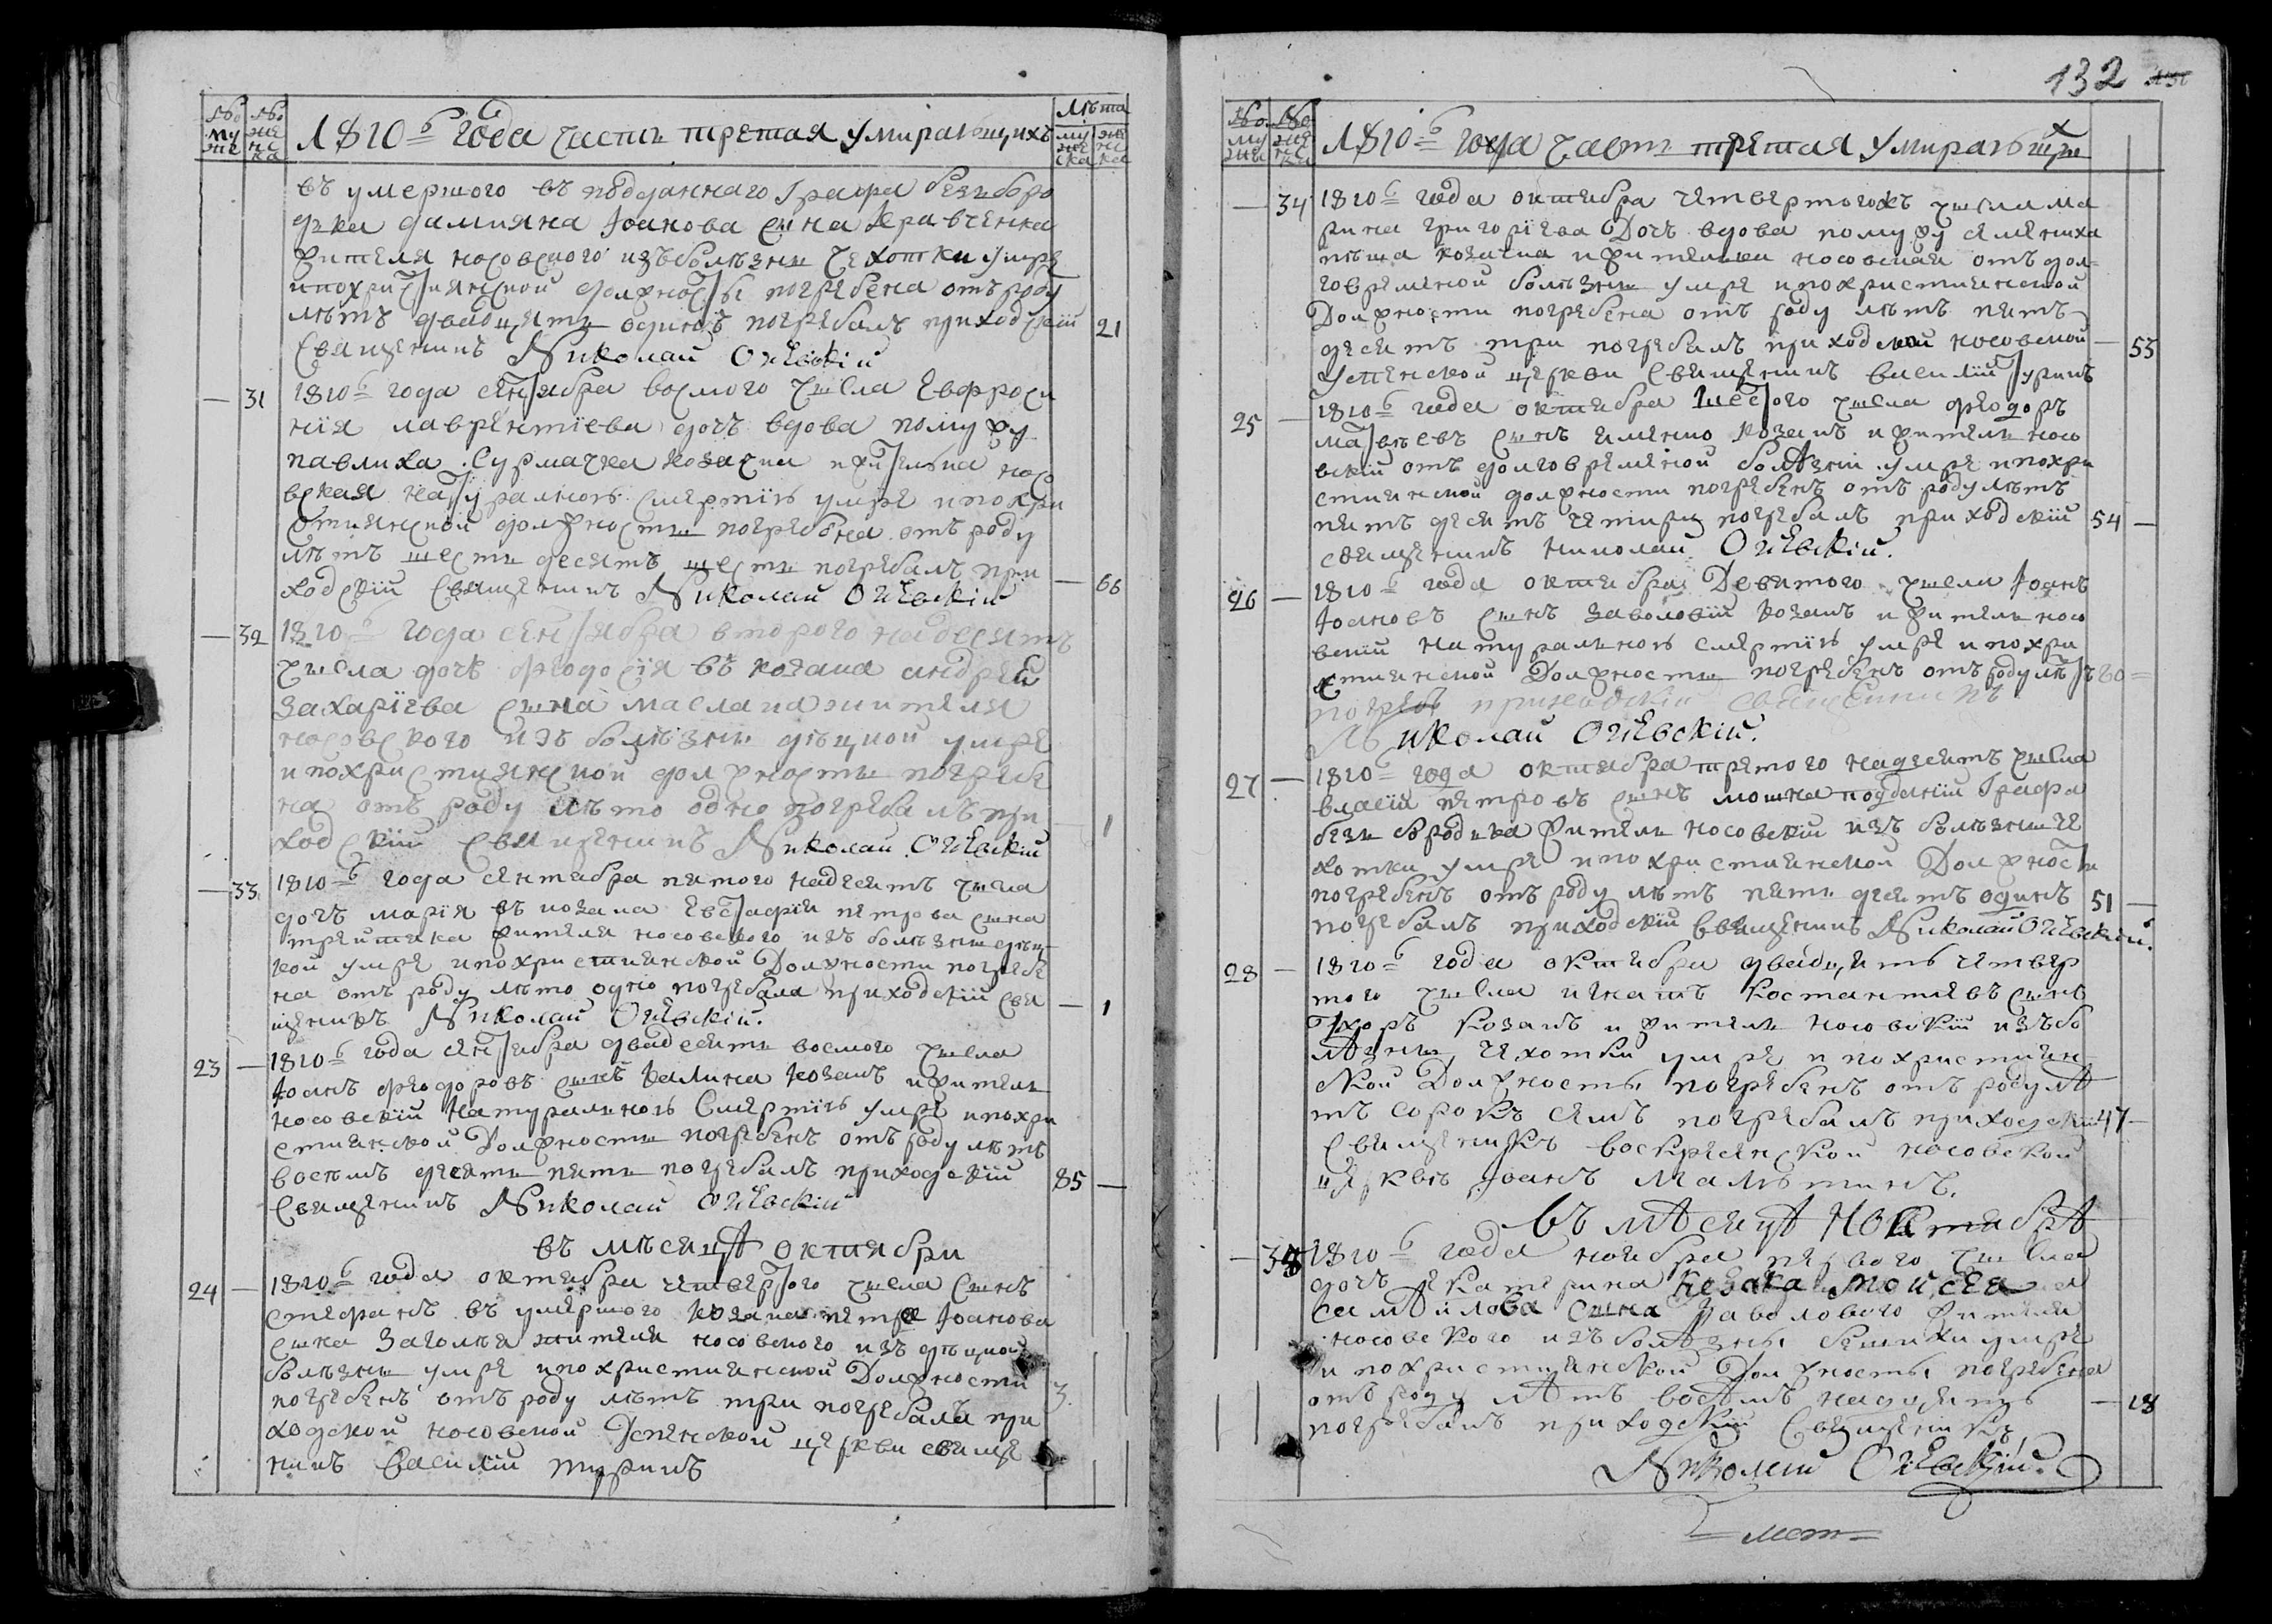 № му же
№ же нс ка
1810го Года часть третая умирающихъ
Лѣта
му жес ка
же нс ка
въ умершого въподданнаго Графа безъборо
дъка дамияна Іоанова сына Кравченка
жителя носовского изъболѣзни чехотки умре
ипохристиянской должности погребена отъроду
лѣтъ двадцять одинъ погребалъ приходскій 21
священикъ Николай Огіевскій
— 31 1810го года сентября восмого числа Евфроси
нія лаврентіева дочь вдова помужу
павлиха Сурмачка козачка ижителька носо
вская натуралною смертію умре ипохри
стиянской должности погребена отъроду
лѣтъ шесть десятъ шесть погребалъ при — 66
ходскій священикъ Николай Огіевскій
— 32 1810го года сентября второго надесять
числа дочь феодосія въ козака андрей
захаріева сына маслака жителя
носовского изъ болѣзни дѣцкой умре
ипохристиянской должности погребе
на отъ роду лѣто одно погребалъ при — 1
ходскій священикъ Николай Огіевскій
— 33 1810го года сентября пятого надесять числа
дочь марія въ козака Евстафія петрова сына
жителя носовского изъ болѣзни дѣц
кой умре ипохристиянской Должности погребе
на отъ роду лѣто одно погребала приходскій свя — 1
щеникъ Николай Огіевскій.
23 — 1810го года сентября двадесять восмого числа
Іоанъ феодоровъ сынъ Калина козакъ ижитель
носовскій натуральною Смертію умре ипохри
стиянской Должности погребенъ отъроду лѣтъ
восемъ десять пять погребалъ приходскій 85 —
Священикъ Николай Огіевскій
въ мѣсяцѣ октября
24 — 1810го года октября четвертого числа сынъ
стефанъ въ умершого козака петра Іоанова
сына жителя носовского изъ дѣцкой
болѣзни умре ипохристиянской Должности
погребенъ отъ роду лѣтъ три погребалъ при 3
ходской носовской Успенской церкви свяще
никъ Василій Туринъ
132
№ му жы
1810го года часть третая умирающихъ
— 34 1810го года октября четвертогожъ числа ма
рина григоріева Дочь вдова помужу семениха
козачка ижителька носовская отъ дол
говременой болѣзни умре ипохристиянской
Должности погребена отъ роду лѣтъ пять
десятъ три погребалъ приходской носовской — 53
Успенской церкви священикъ василій Туринъ
25 — 1810го года октября шестого числа феодоръ
матвѣевъ сынъ козакъ ижитель носо
вскій отъ долговременой болѣзни умре ипохри
стиянской должности погребенъ отъ роду лѣтъ
пять десятъ четири погребалъ приходскій 54 —
священикъ николай Огіевскій.
26 — 1810го года октября Девятого числа Іоанъ
Іоановъ сынъ заволовій козакъ ижитель носо
вскій натуральною смертію умре ипохри
стиянской Должности погребенъ отъроду лѣтъ 80 —
погребъ приходскій священикъ
Николай Огіевскій.
27 — 1810го года октября третого надесять числа
власій петровъ сынъ мошка подданій Графа
безъбородъка житель носовскій изъ болѣзни че
хотки умре ипохристиянской Должности
погребенъ отъроду лѣтъ пять десятъ одинъ 51 —
погребалъ приходскій священикъ Николай Огіевскій.
28 — 1810го года октября двадцять четвер
того числа игнатъ Костантіевъ сынъ
Тхоръ козакъ и житель носовскій изъбо
лѣзни чехотки умре и похристиян
ской Должносты погребенъ отъ роду лѣ
тъ сорокъ семъ погребалъ приходскій 47 —
священикъ воскресенской носовской
церквѣ Іоанъ
въ мѣсяцѣ ноябрѣ
1810го года ноября первого числа
дочь екатерина козака моисея
самуилова сына Заволового жителя
носовского изъ болѣзны умре
и похристиянской Должносты погребена
отъ роду лѣтъ восѣмъ надцять — 18
погребалъ приходскій Священикъ
Николай Огіевскій.